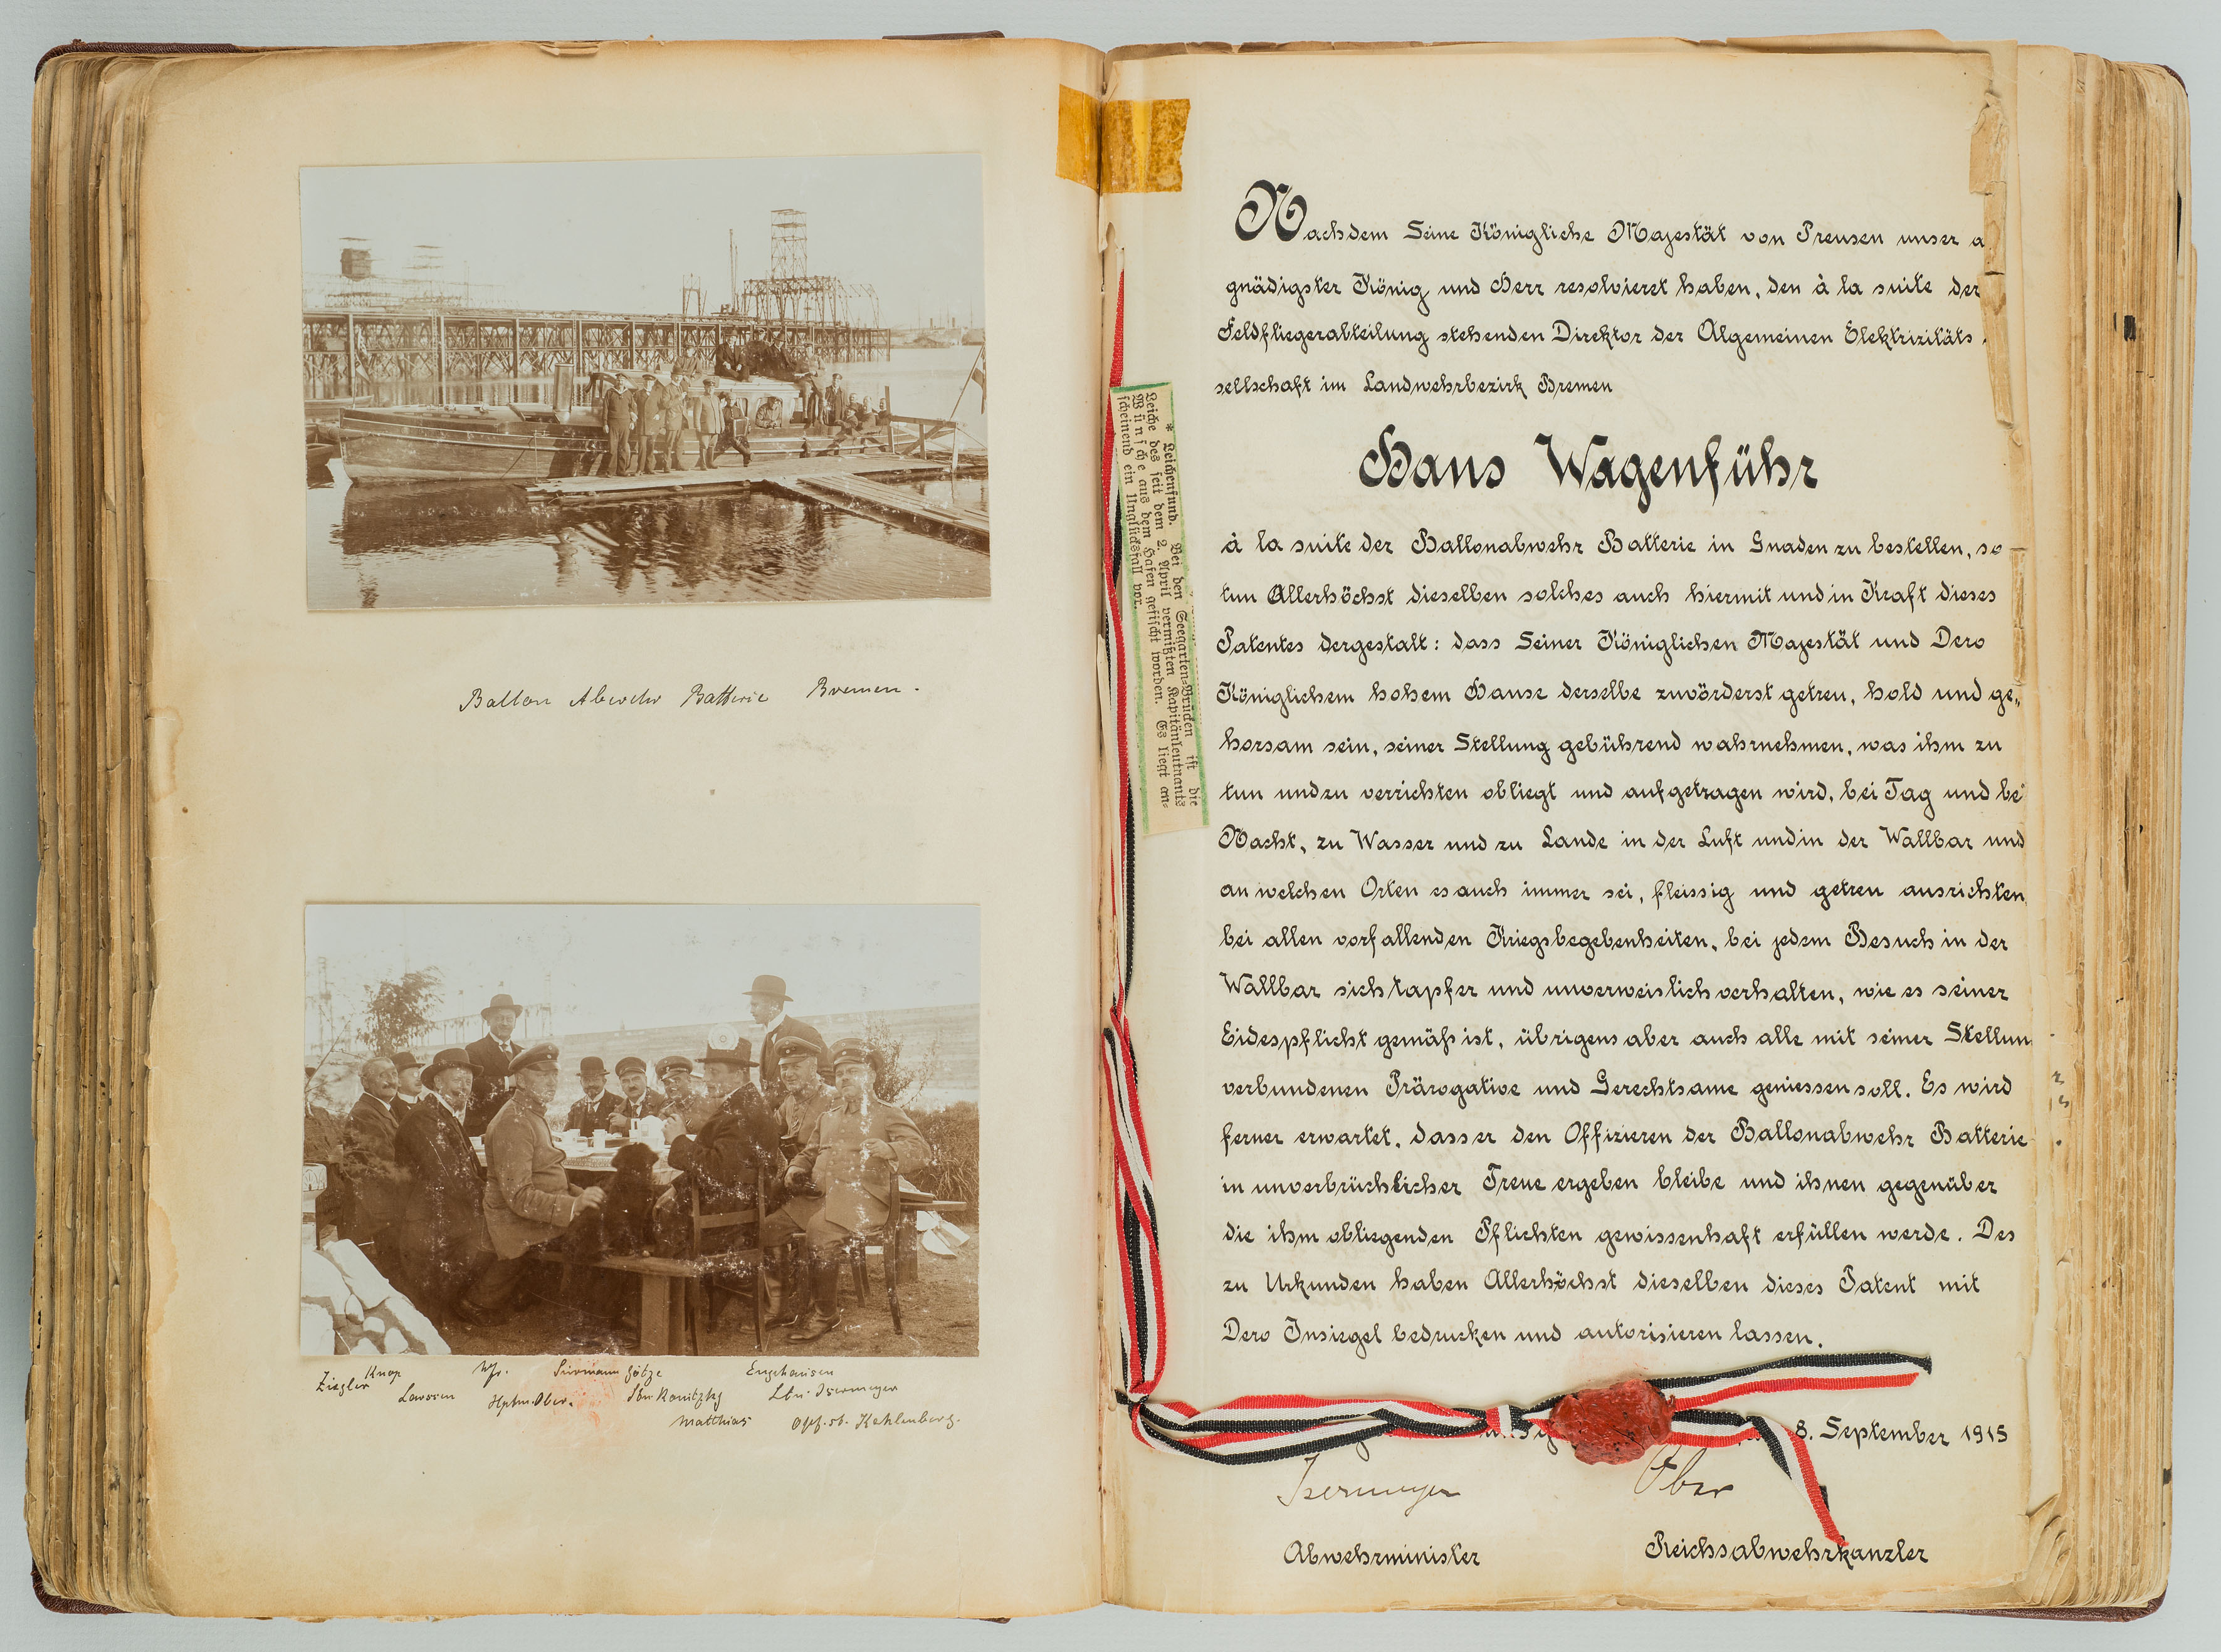 Ballon Abwehr Batterie Bremen.
Knop Wfr. Götze Engehausen
Ziegler Lawssen Hptm. Ober. Ltn. Isermeyer
Matthias Kehlenberg.
* Leichenfund. Bei den Seegarten=Brücken ist die
Leiche des seit dem 2. April vermißten Kapitänleutnants
Wünsche aus dem Hafen gefischt worden. Es liegt an=
scheinend ein Unglücksfall vor.
Nachdem Seine Königliche Majestät von Preusen unser a
gnädigster König und Herr resolvieret haben, den à la suite der
Feldfliegerabteilung stehenden Direktor der Algemeinen Elektrizitäts
sellschaft im Landwehrbezirk Bremen
Hans Wagenführ
à la suite der Ballonabwehr Batterie in Gnaden zu bestellen, so
tun Allerhöchst dieselben solches auch hiermit und in Kraft dieses
Patentes dergestalt: dass Seiner Königlichen Majestät und Dero
Königlichem hohem Hause derselbe zuvörderst getreu, hold und ge„
horsam sein, seiner Stellung gebührend wahrnehmen, was ihm zu
tun und zu verrichten obliegt und aufgetragen wird, bei Tag und bei
Nacht, zu Wasser und zu Lande in der Luft und in der Wallbar und
an welchen Orten es auch immer sei, fleissig und getreu ausrichten
bei allen vorfallenden Kriegsbegebenheiten, bei jedem Besuch in der
Wallbar sich tapfer und unverweislich verhalten, wie es seiner
Eidespflicht gemäß ist, übrigens aber auch alle mit seiner Stellun
verbundenen Prärogative und Gerechtsame geniessen soll. Es wird
ferner erwartet, dass er den Offizieren der Ballonabwehr Batterie
in unverbrüchlicher Treue ergeben bleibe und ihnen gegenüber
die ihm obliegenden Pflichten gewissenhaft erfüllen werde. Des
zu Urkunden haben Allerhöchst dieselben dieses Patent mit
Dero Insiegel bedrucken und autorisieren lassen.
8. September 1915
Isermeyer Ober
Abwehrminister Reichsabwehrkanzler